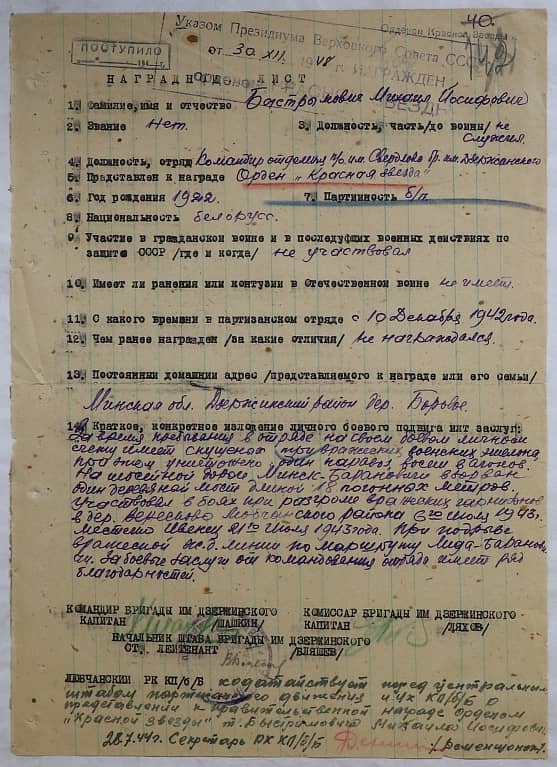 40.
Указом Президиума Верховного Совета СССР
Орденом Красная Звезда
ПОСТУПИЛО
от 30.XII. 1948 г. НАГРАЖДЕН
НАГРАДНОЙ ЛИСТ
1. Фамилие, имя и отчество Бастрымович Михаил Иосифович
2. Звание Нет. 3. Должность, часть/до войны/ не
служил.
4. Должность, отряд Командир отделения п/о им. Свердлова бр. им. Дзержинского
5. Представлен к награде Орден „Красная звезда"
6. Год рождения 1922 7. Партийность б/п
8. Национальность белорусс.
9. Участие в гражданской войне и в последующих военных действиях по
защите СССР /где и когда/ не участвовал
10. Имеет ли ранения или контузии в Отечественной войне не имеет.
11. С какого времени в партизанском отряде с 10 Декабря 1942 года.
12. Чем ранее награжден /за какие отличия/ не награждался.
13. Постоянный домашний адрес /представляемого к награде или его семьи/
Минская обл. Дзержинский район дер. Боровое.
14. Краткое, конкретное изложение личного боевого подвига или заслуг:
За время пребывания в отряде на своем боевом личном
счету имеет спущеных три вражеских военских эшелона
при этом уничтожено один паровоз, восем вагонов.
На шосейной дороге Минск-Барановичи взорван
один деревяный мост длиной 12 погонных метров.
Участвовал в боях при разгроме вражеских гарнизонов
в дер. Любчанского района 6го июля 1943г.
местечко Ивенец 21го июля 1943 года. При подрыве
вражеской ж.д. линии по маршруту Лида-Баранов
ичи. За боевые заслуги от командования отряда имеет ряд
благодарностей.
КОМАНДИР БРИГАДЫ ИМ ДЗЕРЖИНСКОГО КОМИССАР БРИГАДЫ ИМ ДЗЕРЖИНСКОГО
КАПИТАН /ШАШКИН/ КАПИТАН /ЛЯХОВ/
НАЧАЛЬНИК ШТАБА БРИГАДЫ ИМ ДЗЕРЖИНСКОГО
СТ. ЛЕЙТЕНАНТ /ВЛЯШЕВ/
ЛЮБЧАНСКИЙ РК КП/б/Б ходатайствует перед Центральным
штабом партизанского движения и ЦК КП/б/Б о
представлении к правительственной награде орденом
„Красной Звезды" т. Быстримовича Михаила Иосифовича
28.7.44г. Секретарь РК КП/б/Б